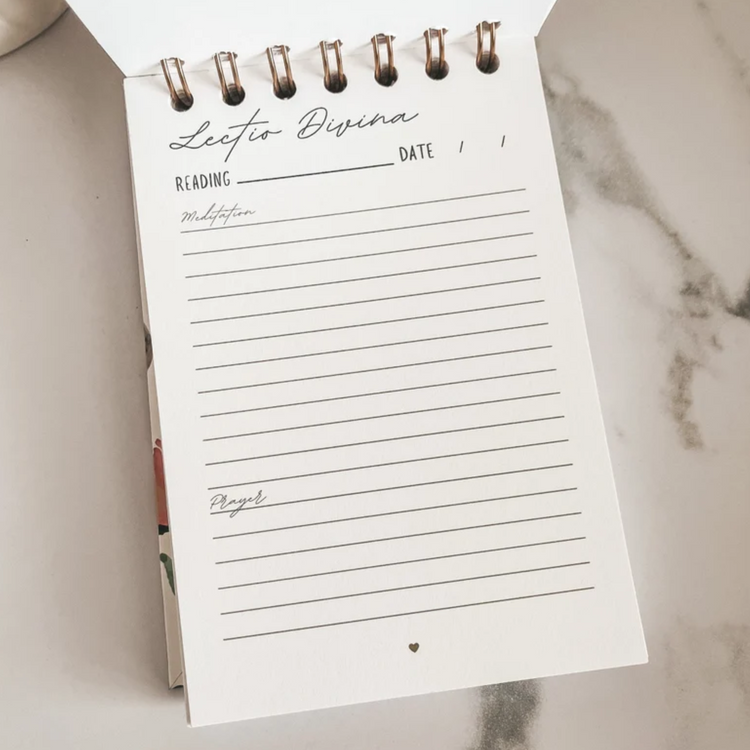 Lectio Divina
READING ____________ DATE / /
Meditation
Prayer